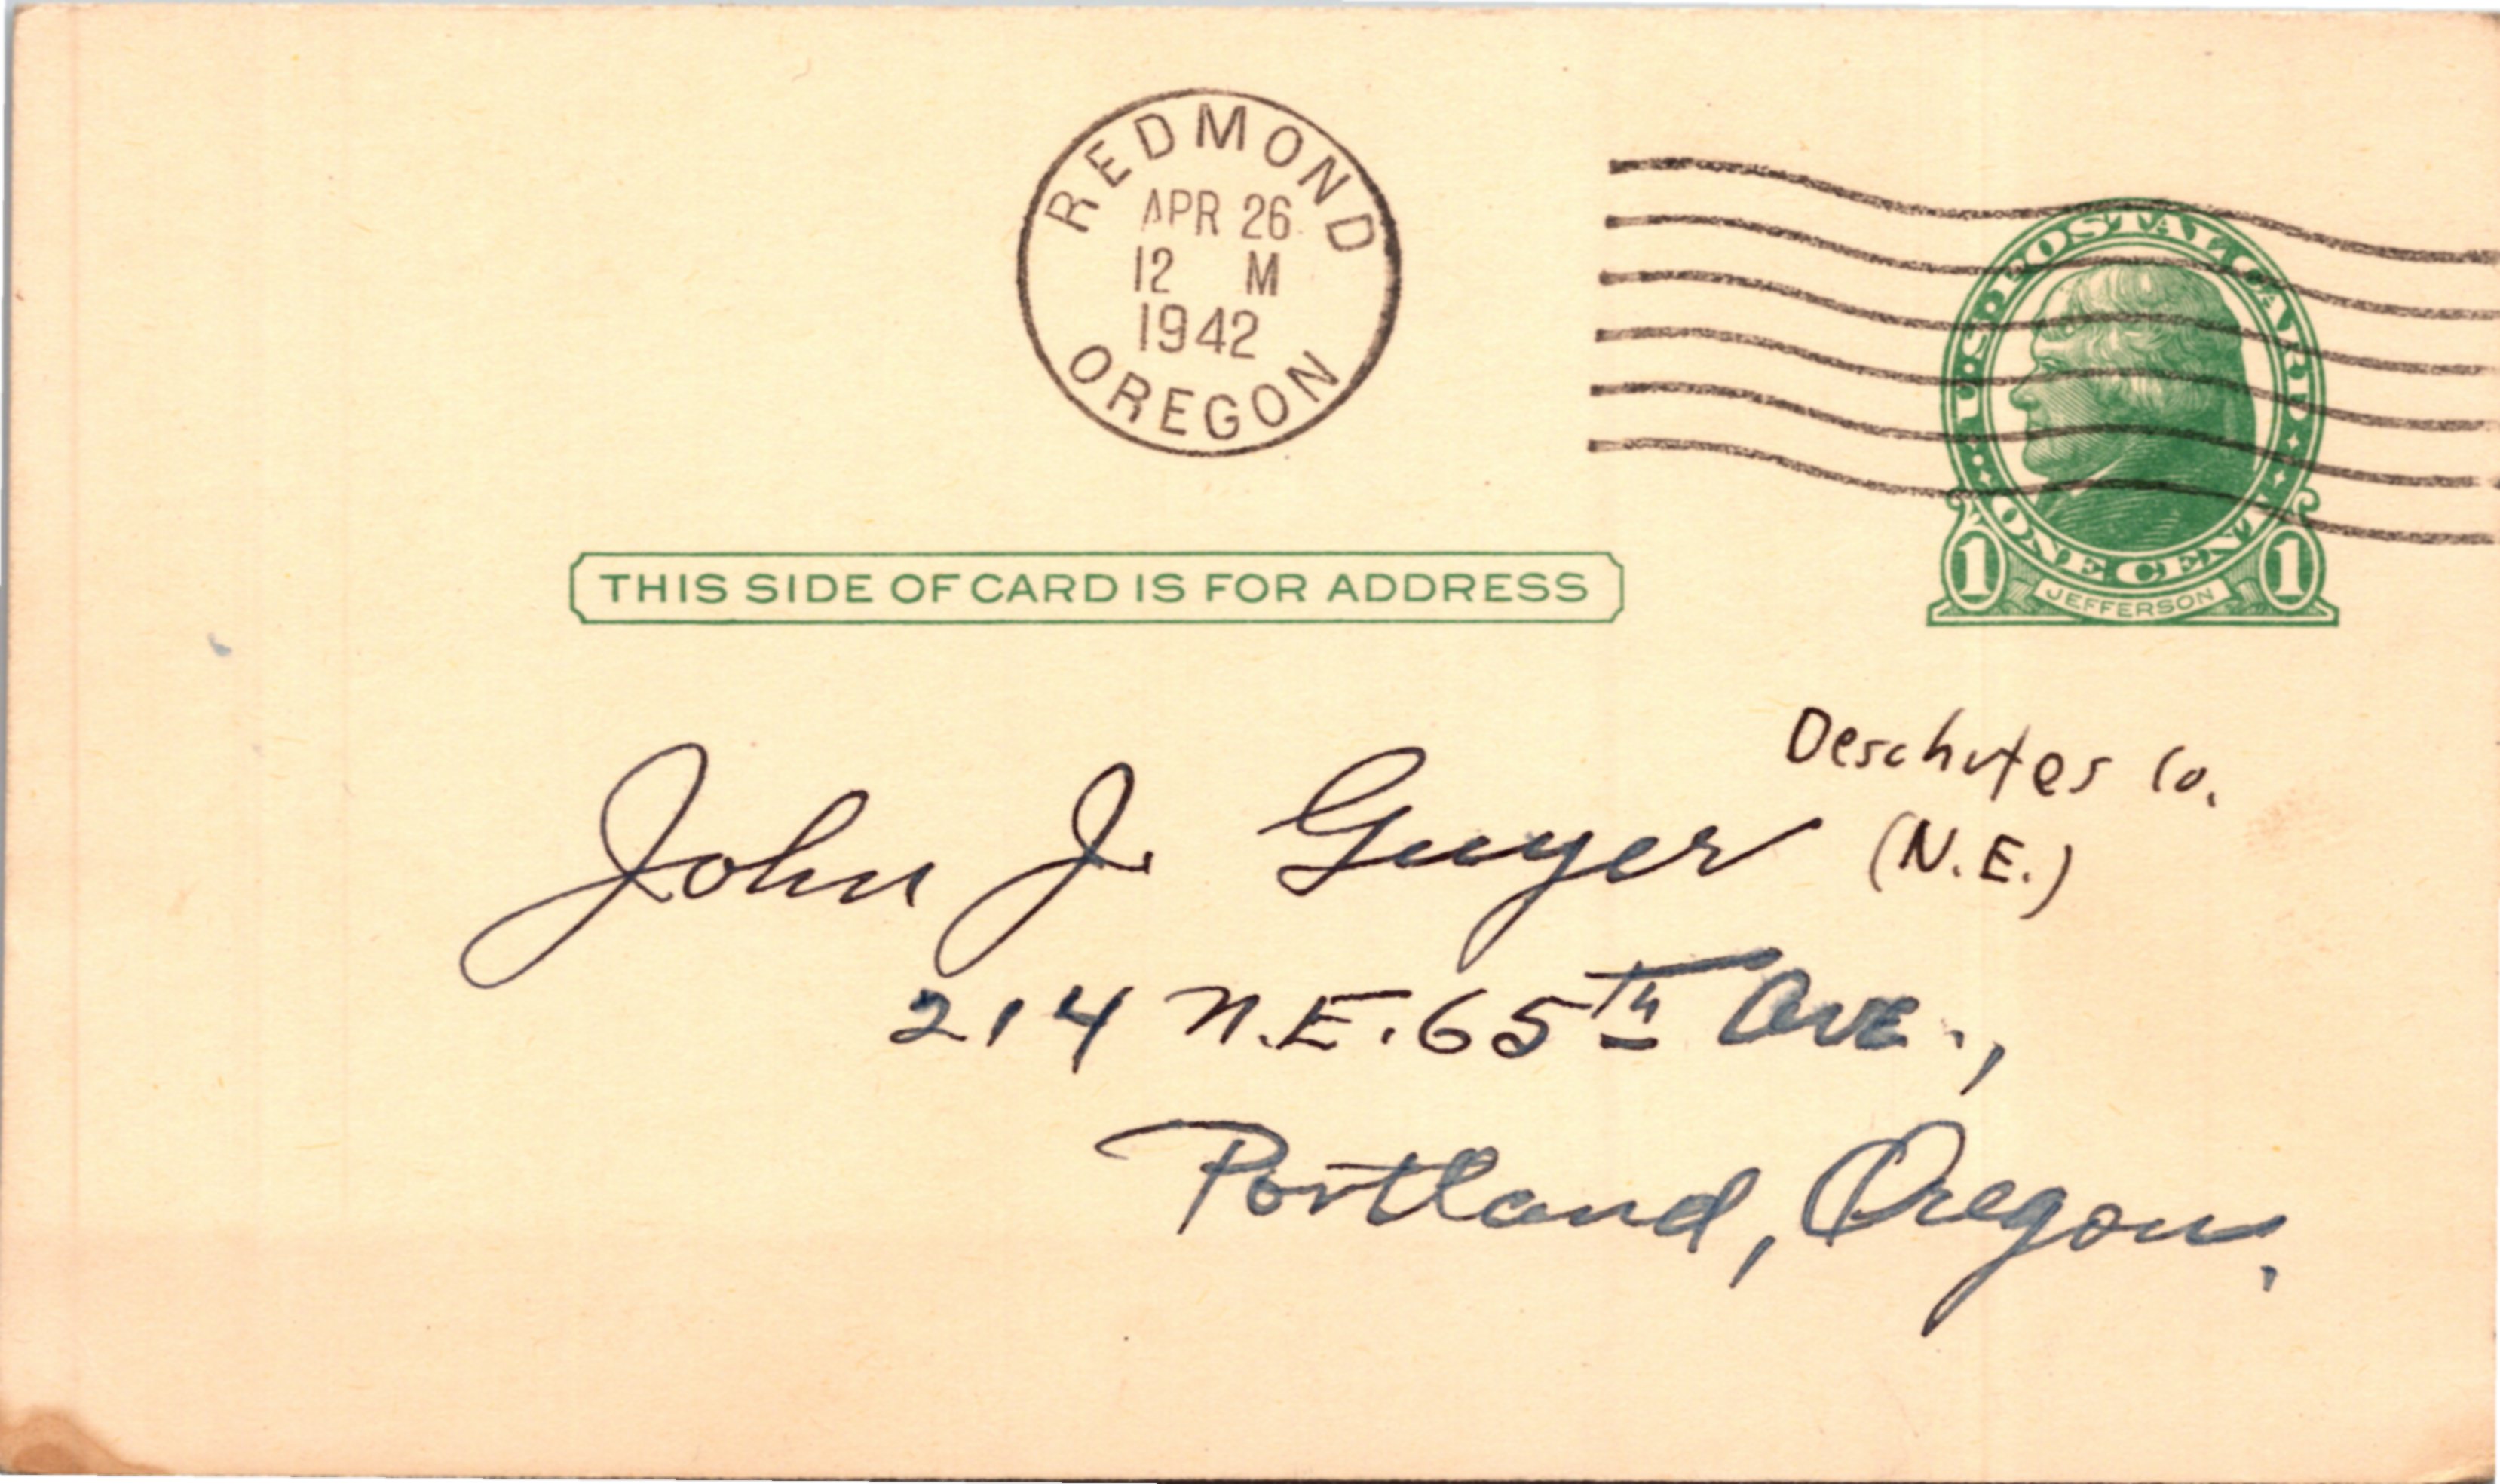 REDMOND
APR 26
12 M
1942
OREGON
U.S. POSTAL CARD
ONE CENT
1 JEFFERSON 1
THIS SIDE OF CARD IS FOR ADDRESS
Deschutes Co.
(N.E.)
John J. Guyer
214 N.E. 65th Ave.,
Portland, Oregon.